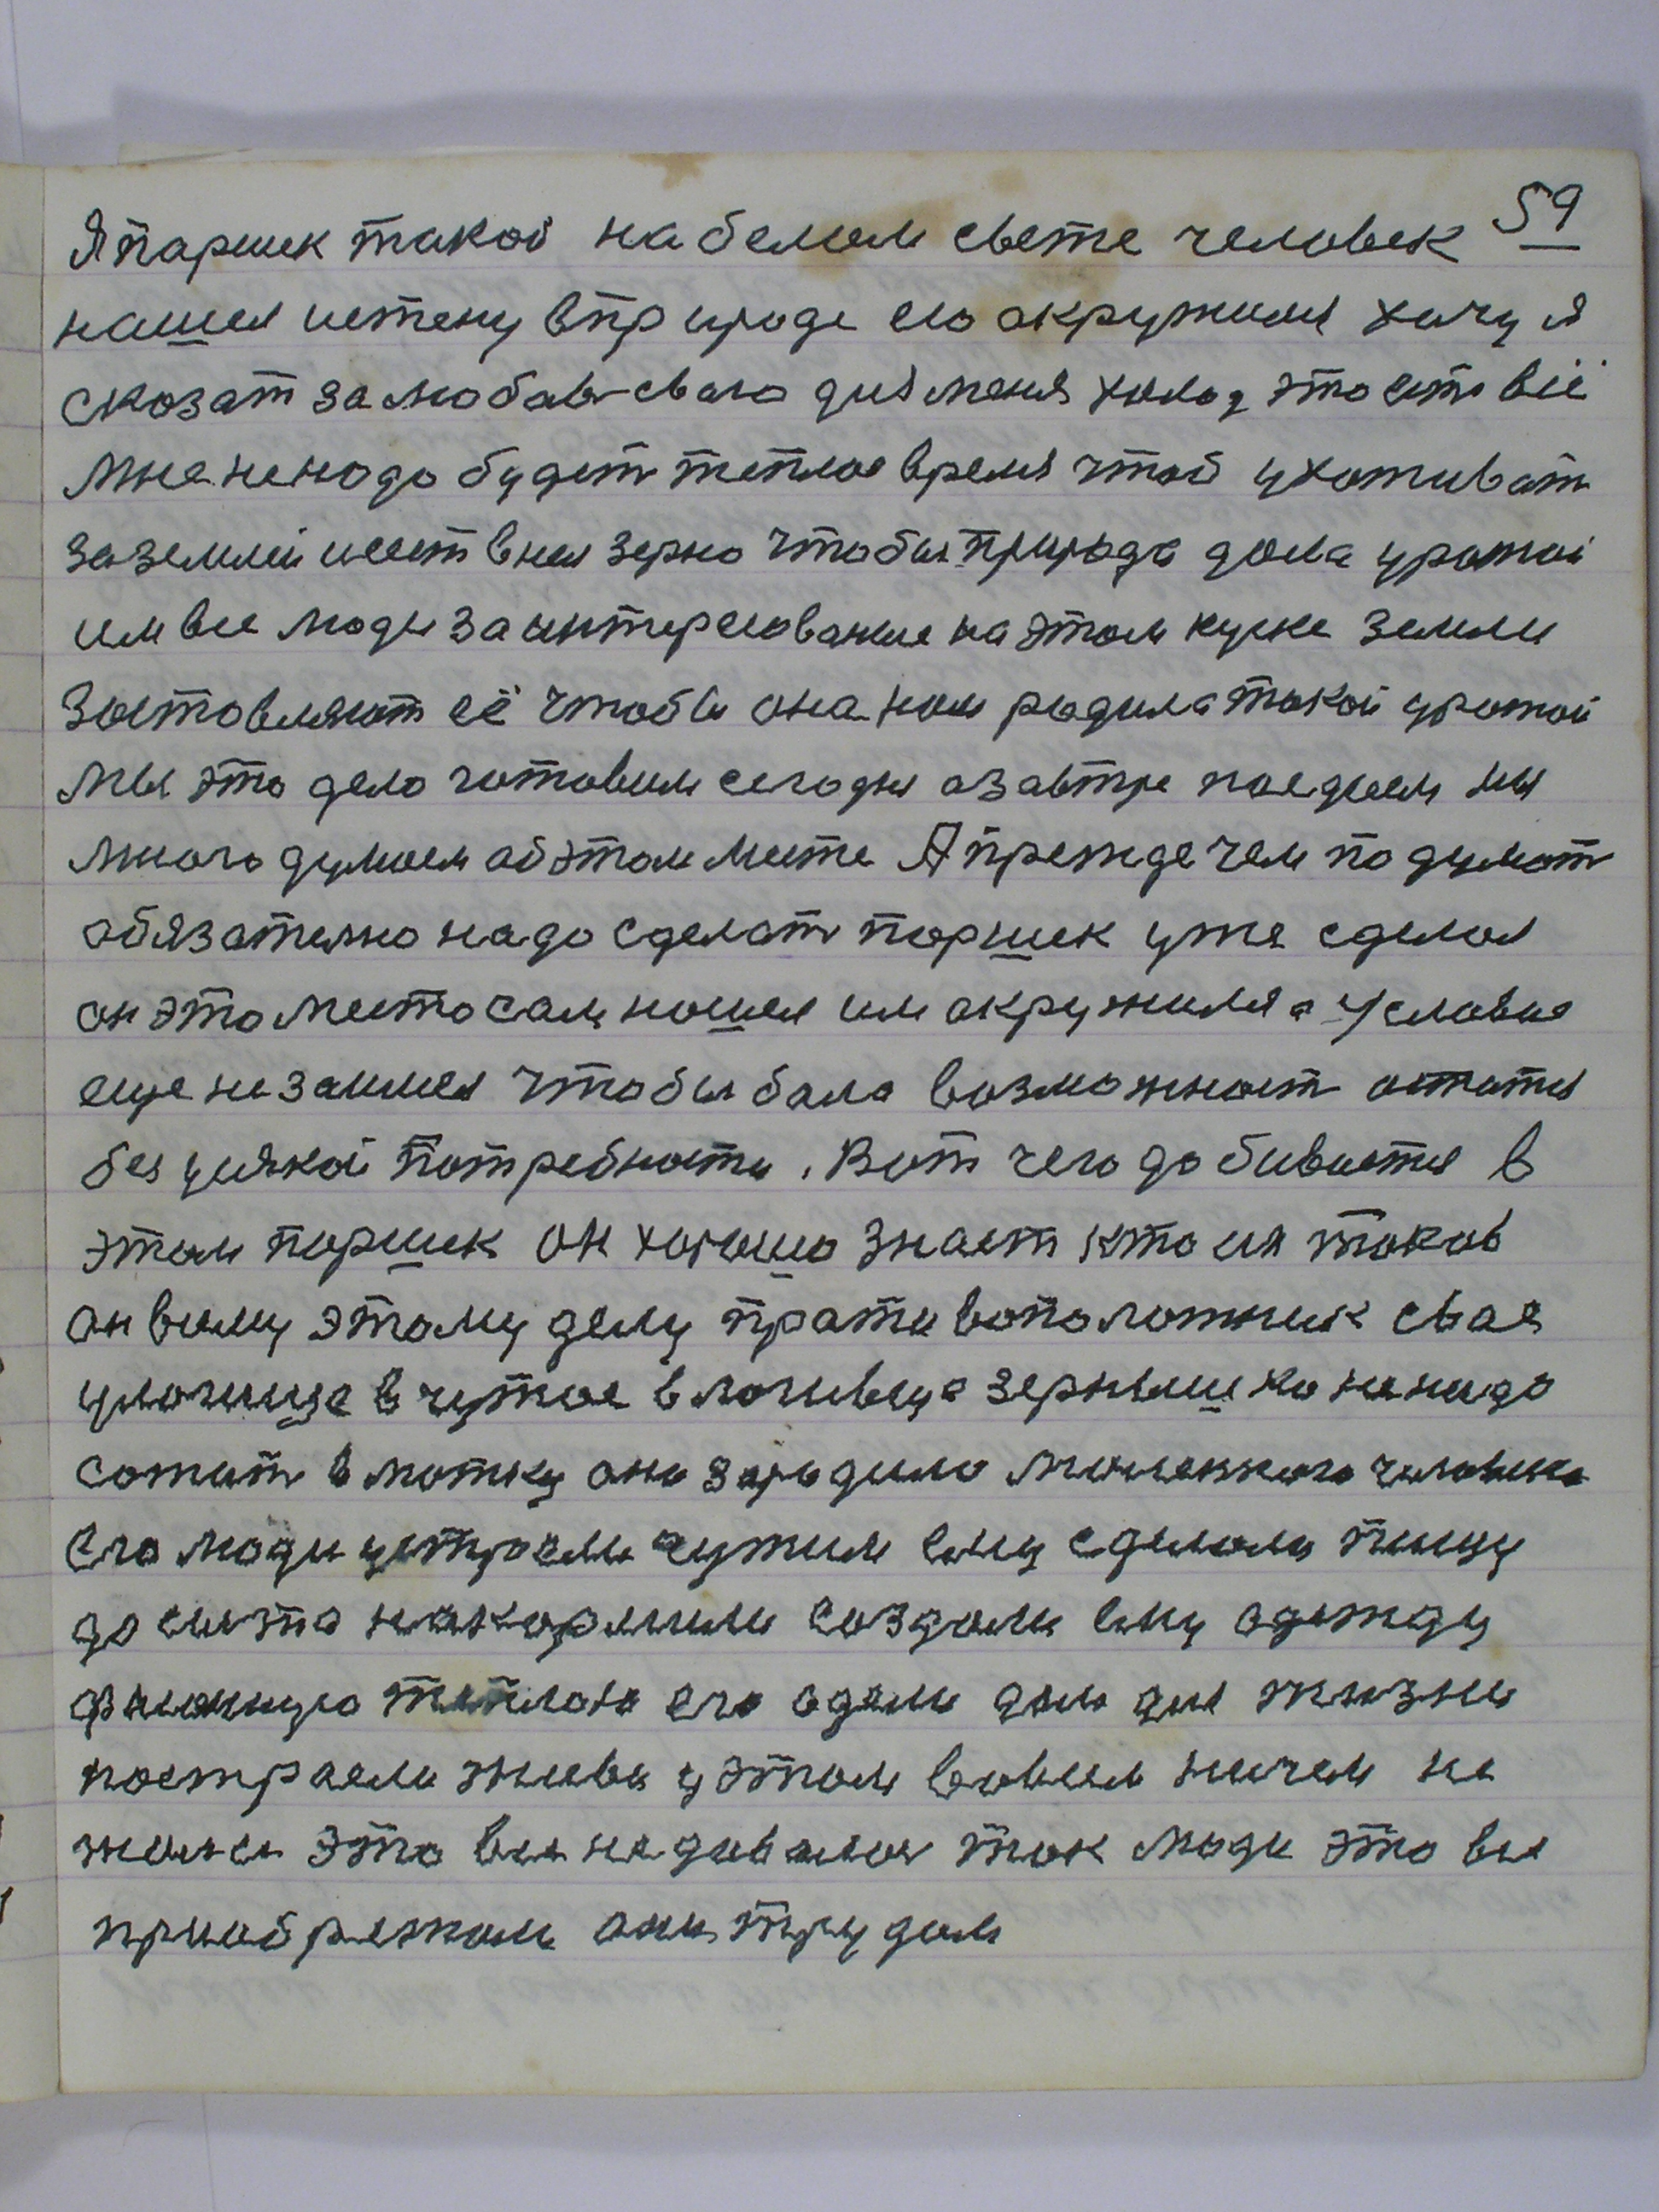 59
Я паршек такой на белом свете человек
нашел истену в природе его окружил хачу я
сказат за любов сваго для меня холод это ест всё
мне не надо будет теплое время чтоб ухоживат
за землей и сеят в нея зерно чтобы природа дала урожай
им все люди заинтересование на этом куске земли
заставляют её чтобы она нам радила такой урожай
мы это дело готовим сегодня а завтре поедаем мы
много думаем об этом месте А прежде чем подумат
обязателно надо сделат паршек уже сделал
он это место сам нашел им окружился Условие
еще не занимел чтобы было возможност остатся
без усякой потребности. Вот чего добивается в
этом паршек он хорошо знает кто ия таков
он всему этому делу противоположник свае
в чужое зернышко не надо
сажат в матку она зародила маленкого человека
Его люди устроели чужим ему сделали пищу
до сыта накормили создали ему одежду
его одели дом для жизни
построели живи у этом ничем не
это все не давалос так люди это все
они трудом